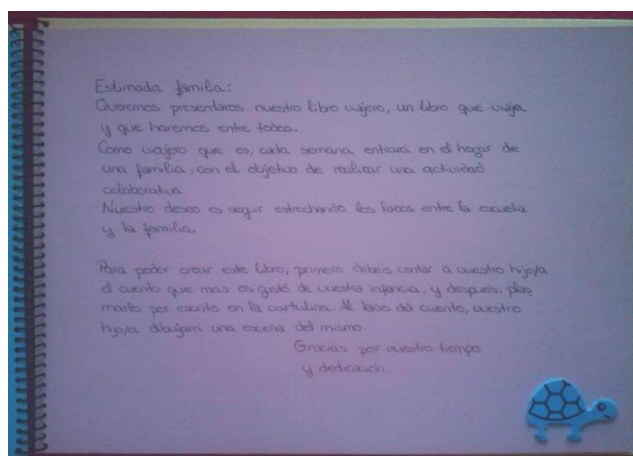 Estimada familia:
Queremos presentaros nuestro libro viajero, un libro que viaja
y que haremos entre todos.
Como viajero que es, cada semana entrará en el hogar de
una familia, con el objetivo de realizar una actividad
colaborativa.
Nuestro deseo es seguir estrechando los lazos entre la escuela
y la familia.
Para poder crear este libro, primero debeis contar a vuestro hijo/a
el cuento que mas os gustó de vuestra infancia, y despues, plas
marlo por escrito en la cartulina. Al lado del cuento, vuestro
hijo/a dibujará una escena del mismo.
Gracias por vuestro tiempo
y dedicación.